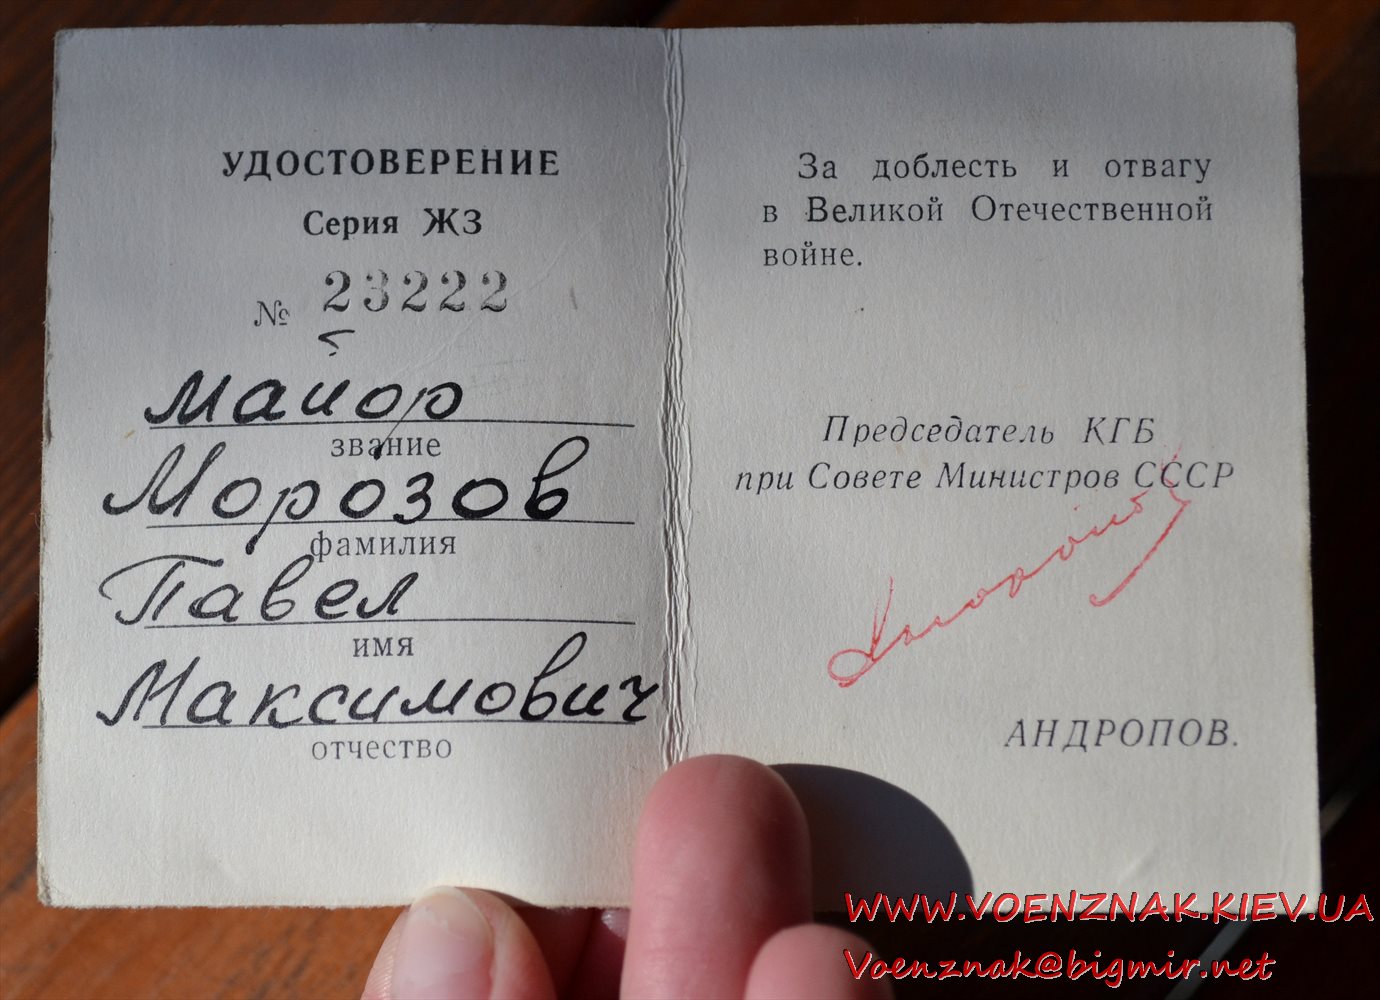 УДОСТОВЕРЕНИЕ
Серия ЖЗ
№ 23222
майор
звание
Морозов
фамилия
Павел
имя
Максимович
отчество
За доблесть и отвагу
в Великой Отечественной
войне.
Председатель КГБ
при Совете Министров СССР
АНДРОПОВ.
WWW.VOENZNAK.KIEV.UA
Voenznak@bigmir.net